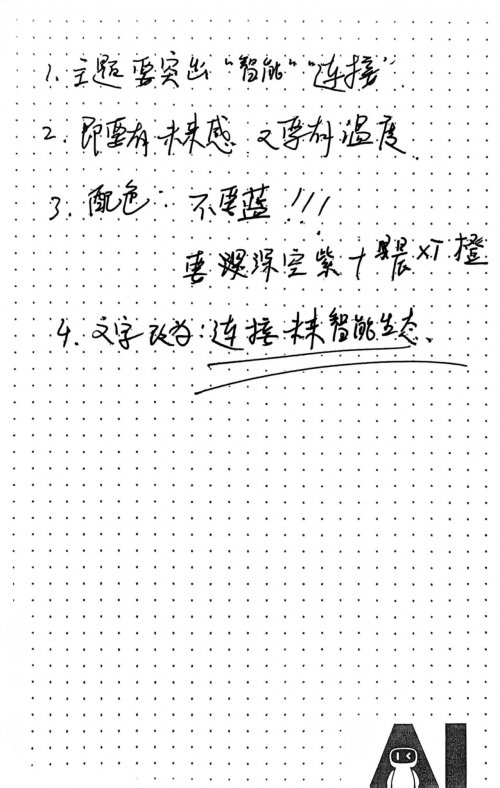 1. 主题要突出 "智能" "连接"
2. 即要有未来感 又要有温度
3. 配色: 不要蓝!!!
要深空紫 + 晨灯橙
4. 文字改为: 连接未来智能生态。
AI